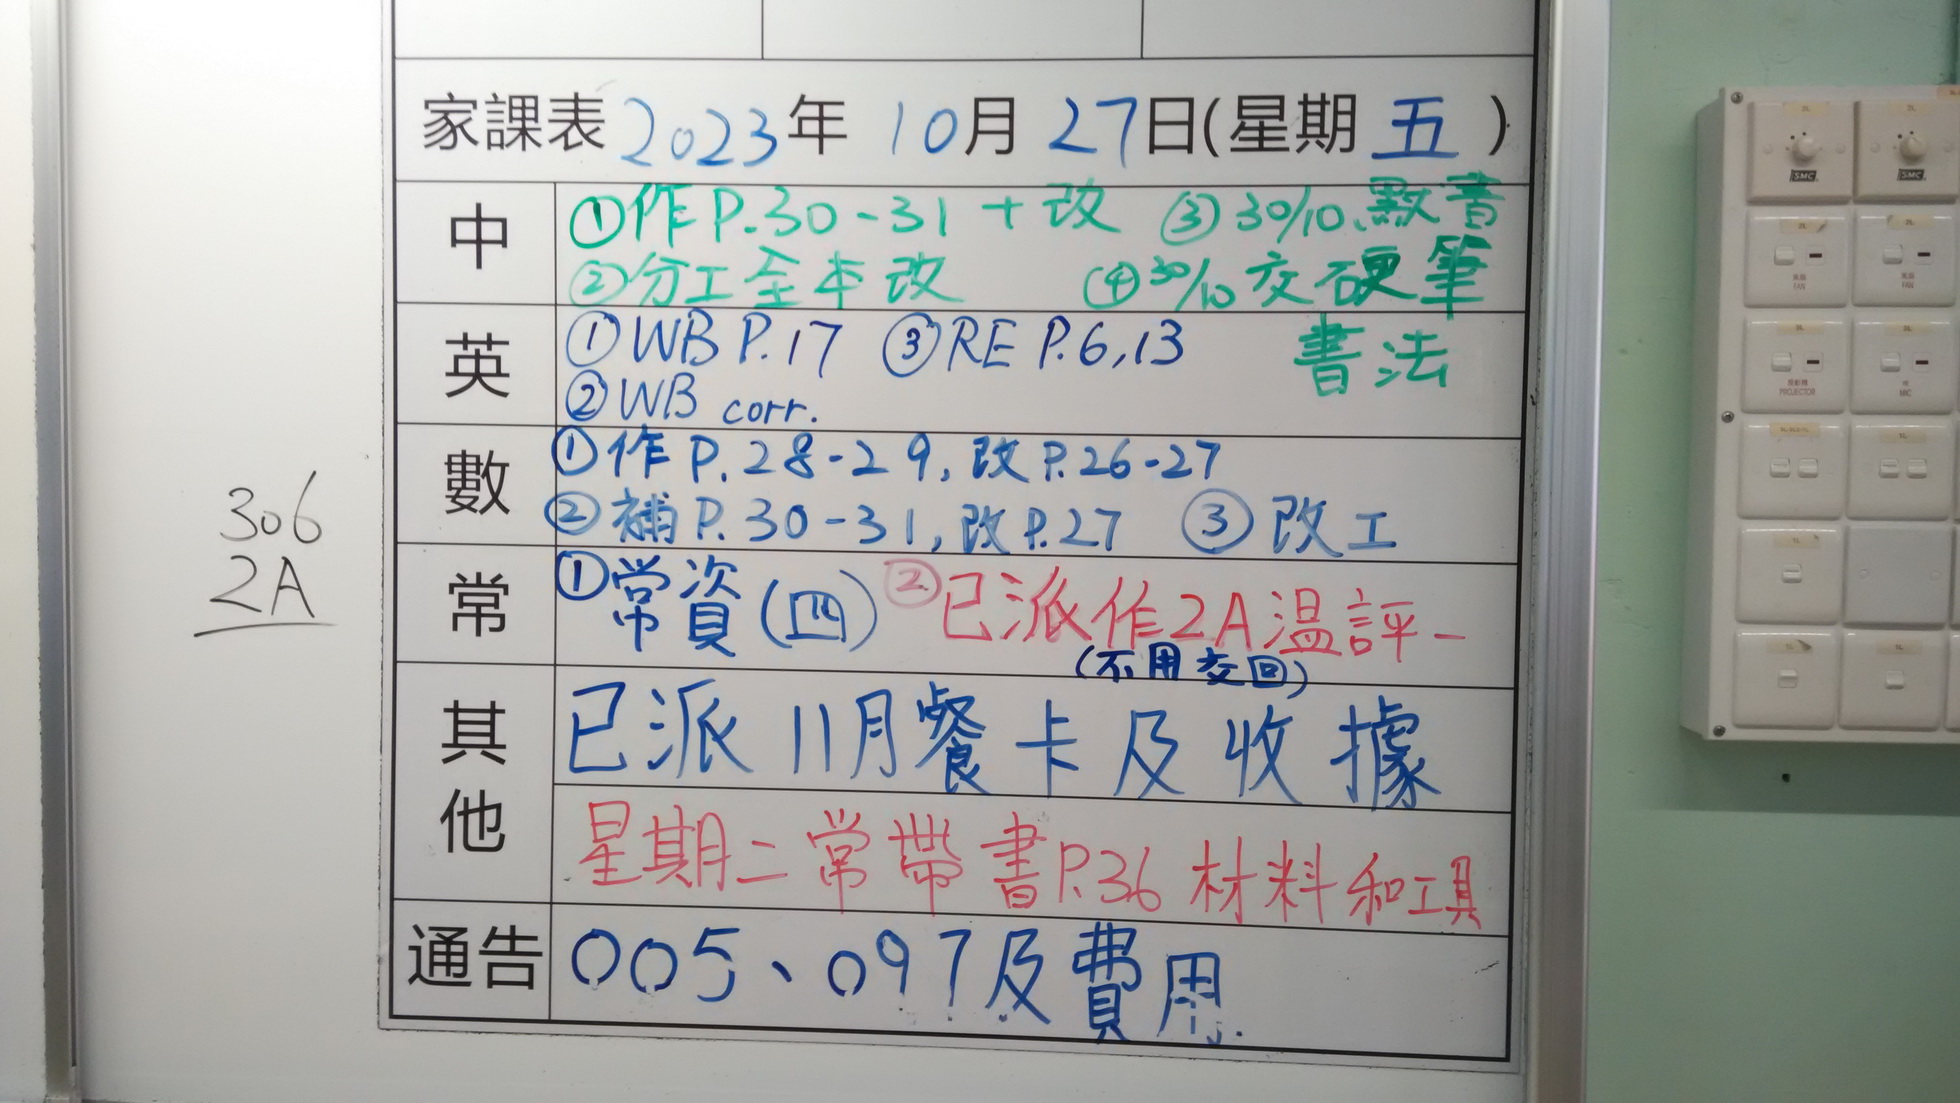 家課表 2023年 10月 27日(星期 五 )
中 ①作P.30-31 + 改 ③30/10、點書
②分工全本改 ④30/10交硬筆
書法
英 ①WB P.17 ③RE P.6,13
②WB corr.
數 ①作P.28-29, 改P.26-27
②補P.30-31, 改P.27 ③改工
常 ①常資(四) ②已派作2A溫評一
(不用交回)
其他 已派11月餐卡及收據
星期二常帶書P.36材料和工具
通告 005、097及費用.
306
2A
SMC
SMC
FAN
FAN
PROJECTOR